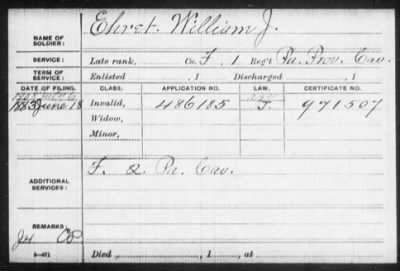 Ehret, William J.
NAME OF SOLDIER:
SERVICE: Late rank, Co. F. 1 Reg't Pa. Prov. Cav.
TERM OF SERVICE: Enlisted , 1 Discharged , 1
DATE OF FILING. CLASS. APPLICATION NO. LAW. CERTIFICATE NO.
1883 June 18 Invalid, 486185 J. 971507
Widow,
Minor,
ADDITIONAL SERVICES: F. 2. Pa. Cav.
REMARKS:
Died , 1 , at